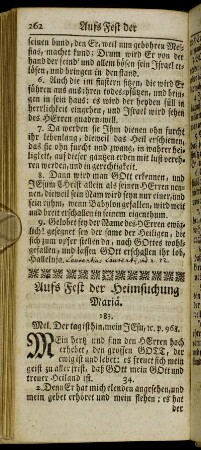 262 Aufs Fest der
seinen bund, den Er, weil nun gebohren Mes-
sias, machet kund; Drum wird Er von der
hand der feind' und allem bösen sein Israel er-
lösen, und bringen in den stand.
6. Auch die im finstern sitzen, die wird Er
führen aus aus ihren todes-pfützen, und brin-
gen in sein haus: es wird der heyden füll in
herrlichkeit eingehen, und Israel wird sehen
des HErren gnaden-will.
7. Da werden sie Ihm dienen ohn furcht
ihr lebenlang; dieweil das Heil erschienen,
das sie ohn furcht und zwang, in wahrer heili-
gkeit, auf dieser gantzen erden mit lust vereh-
ren werden, und in gerechtigkeit.
8. Dann wird man GOtt erkennen, und
JEsum Christ allein als seinen HErren nen-
nen, dieweil sein Nam wird seyn nur einer, und
sein ruhm, wenn Babylon gefallen, wird weit
und breit erschallen in seinem eigenthum.
9. Gelobet sey der Name des HErren ewig-
lich! gesegnet sey der same der Heiligen, die
sich zum opfer stellen da, nach GOttes wohl-
gefallen, und lassen GOtt erschallen ihr lob,
Halleluja.
Aufs Fest der Heimsuchung
Mariä.
183.
Mel. Der tag ist hin, mein JEsu, ic. p. 968.
MEin hertz und sinn den HErren hoch
erhebet, den grossen GOTT, der
ewig ist und lebet: es freuet sich mein
geist zu aller frist, daß GOtt mein GOtt und
treuer Heiland ist. 34.
2. Denn Er hat mich elenden angesehen, und
mein gebet erhört und mein flehen: es hat
der